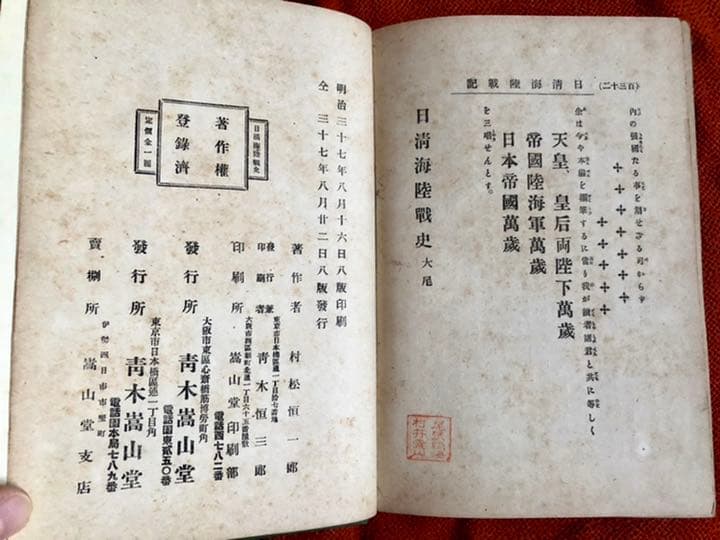 日清海陸戰記
(百三十二)
内の強國たる事を
余は今や本編を
天皇、皇后両陛下萬歲
帝國陸海軍萬歲
日本帝國萬歲
を三唱せんとす。
日清海陸戰史 大尾
明治三十七年八月十六日八版印刷
仝 三十七年八月廿二日八版發行
日清海陸戰史
著作權
登錄濟
定價金一圓
著作者 村松恒一郎
東京市日本橋區通一丁目拾七番地
發行兼印刷者 青木恒三郎
印刷所 嵩山堂印刷部
電話西七八二番
大阪市東區心齋橋筋博勞町角
發行所 青木嵩山堂
電話園東貳五〇番
東京市日本橋區通一丁目角
發行所 青木嵩山堂
電話園本局七八九番
伊勢四日市市竪町
賣捌所 嵩山堂支店